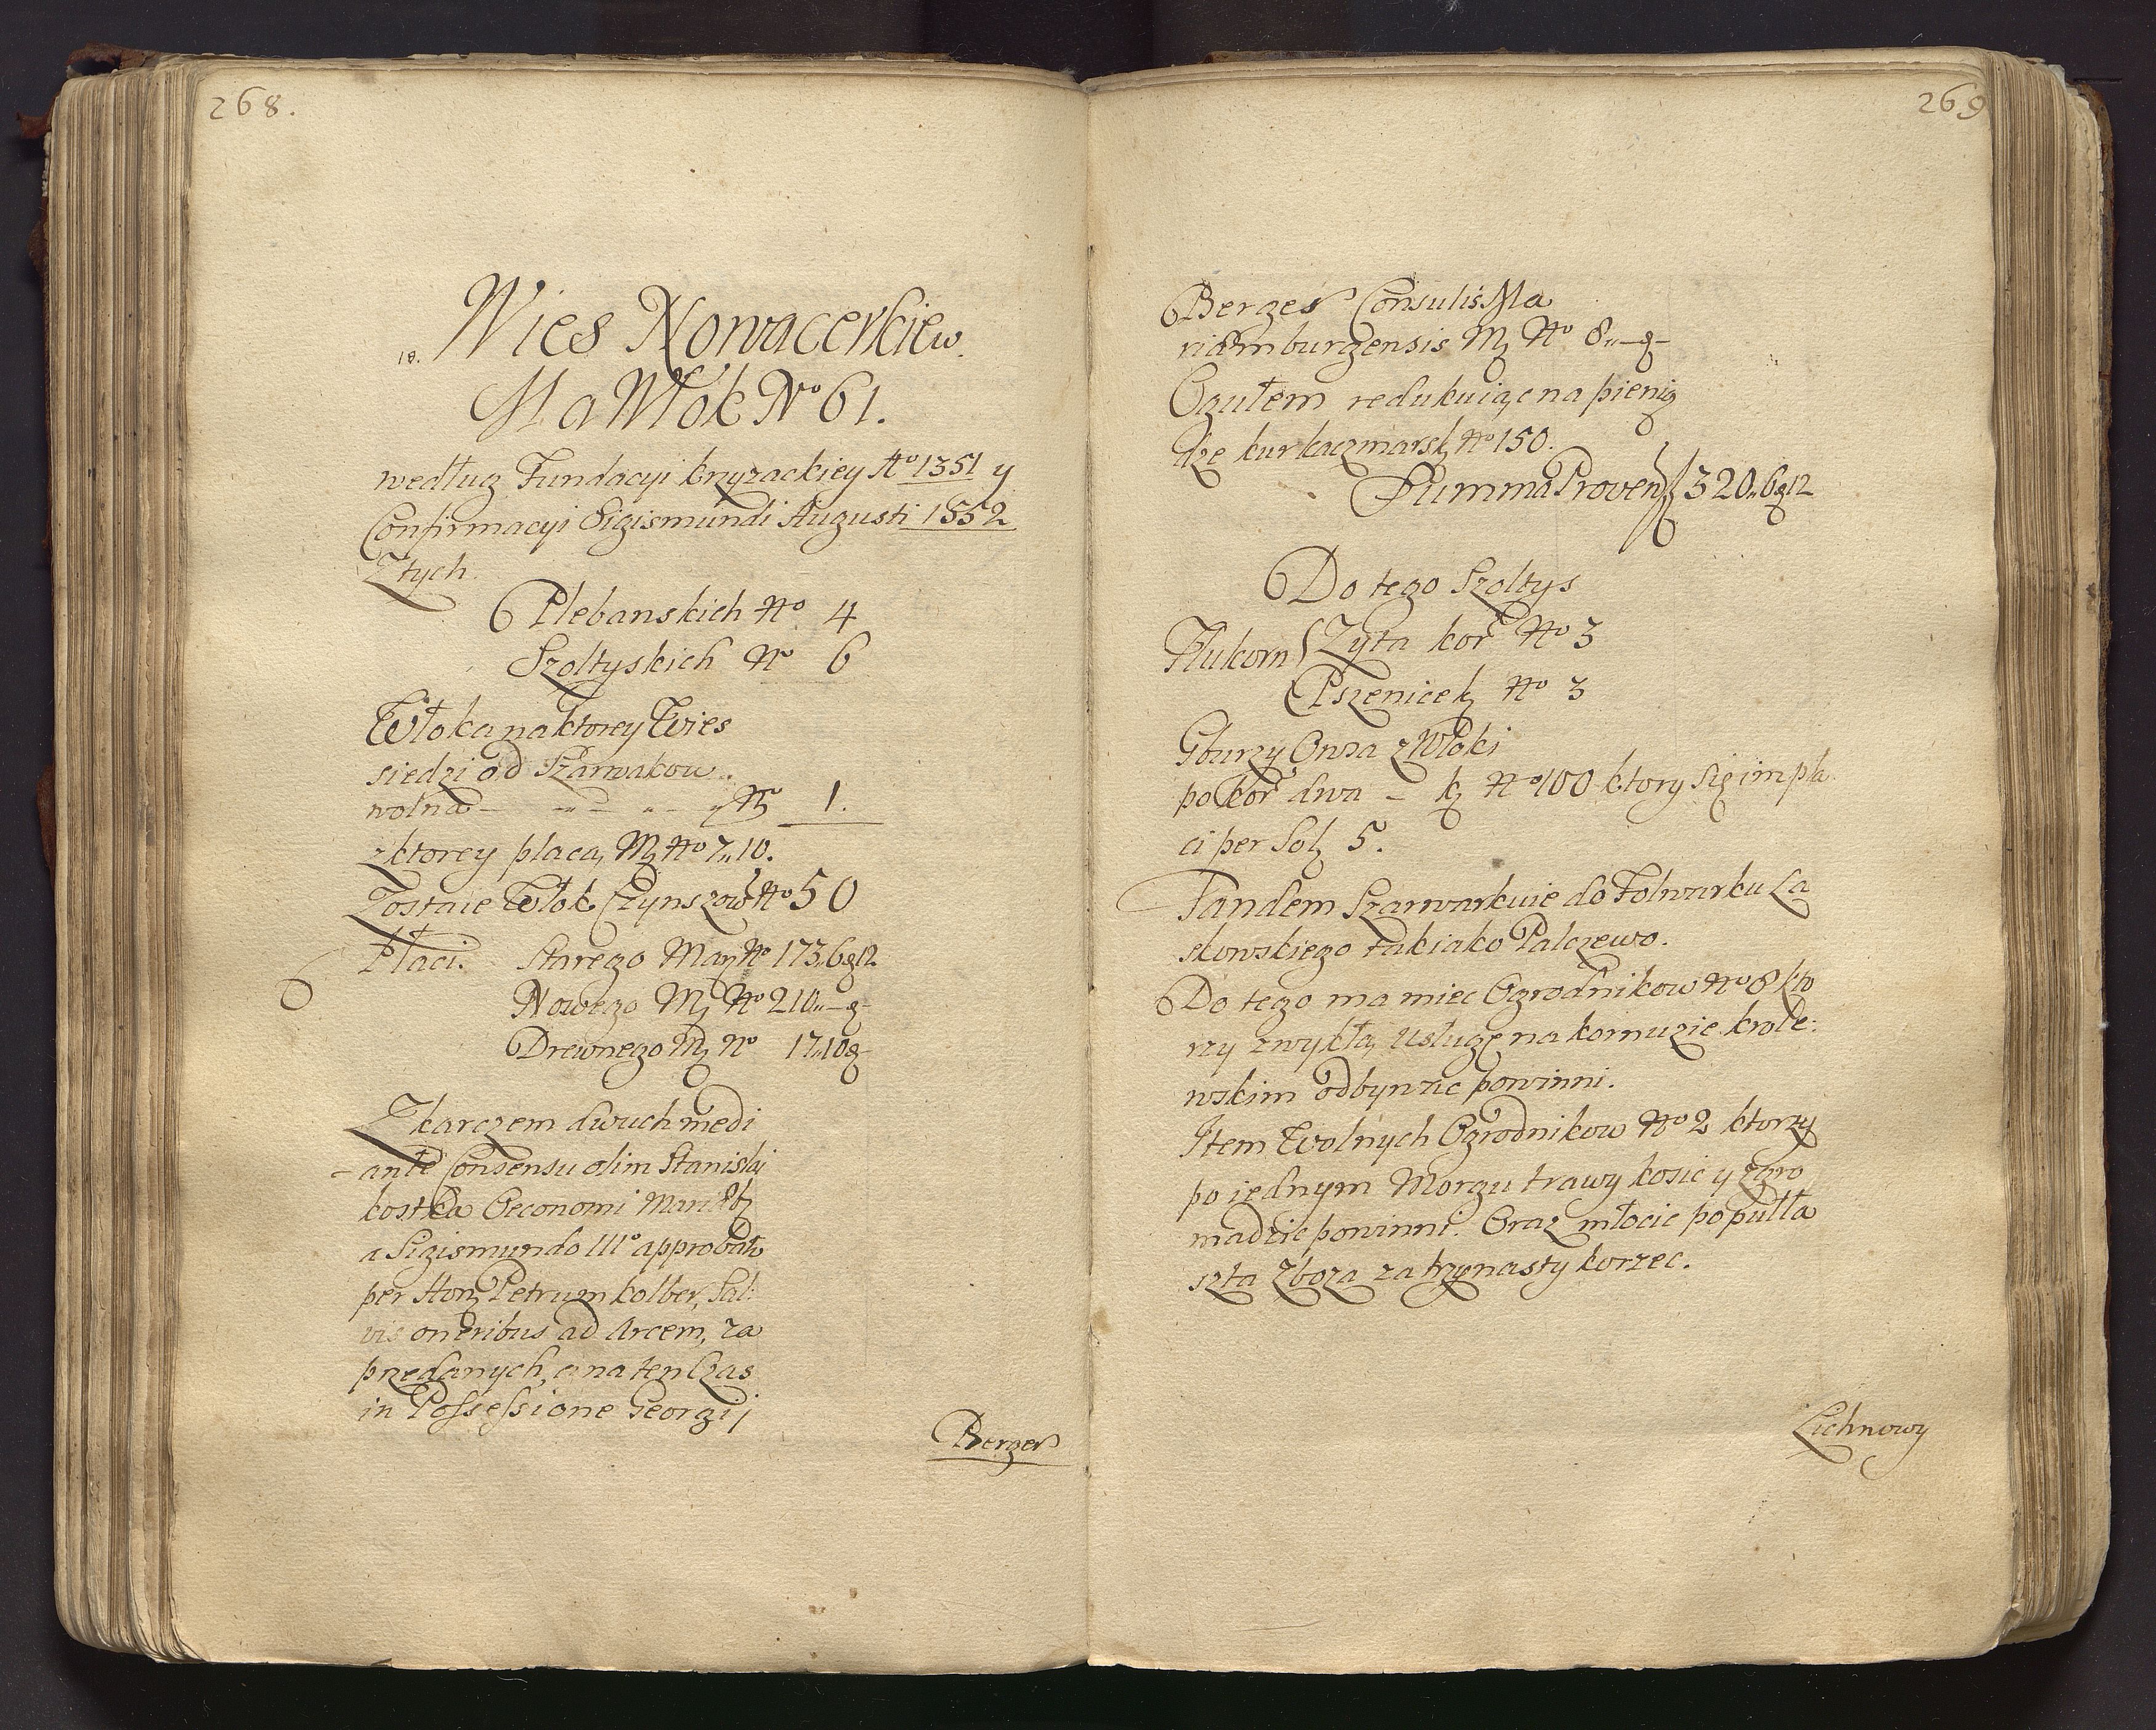 268.
18. Wies Nowacerkiew.
Ma Włók No 61.
według Fundacyi krzyzackiey Ao 1351 y
Confirmacyi Sigismundi Augusti 1552
Ztych
Plebanskich No 4
Szoltyskich No 6
Włoka naktorey Wies
siedzi od Szarwakow
wolna No 1.
z ktorey placą Mz No 7,,10.
Zostaie Włok Czynszow No 50
Płaci. Starego Marz No 173,,6g12
Nowego Mz No 210,,—g—
Drewnego Mz No 17,,10g—
Zkarczem dwuch medi
ante Consensu olim Stanislaj
kostka Oeconomi Mar
a Sigismundo III° approbato
per Hon Petrum kolber, Sal:
vis oneribus ad Arcem, za
przedanych, a na ten Czas
in Possessione Georgij
Berger
269
Berger Consulis Ma
riamburgensis Mz No 8,,—g—
Ogułem redukuiąc na pienią
dze kur kaczmarsk No 150.
Summa Proven 320,,6g12
Do tego Szoltys
Flukorn Zyta kor No 3
Pszenice kz No 3
Gburzy Owsa z Włoki
po kor dwa — kz No 100 ktory się im pła
ci per Solz 5.
Tandem Szarwarkuie do Folwarku La
skowskiego tak iako Palczewo.
Do tego ma miec Ogrodnikow No 8 kto
rzy zwykłą usługę na kornuzie krole:
wskim odbywac powinni.
Item Wolnych Ogrodnikow No 2 ktorzy
po iednym Morgu trawy kosic y zgro
madzic powinni. Oraz młocic po pułła
szta Zboza za trzynasty korzec.
Lichnowy